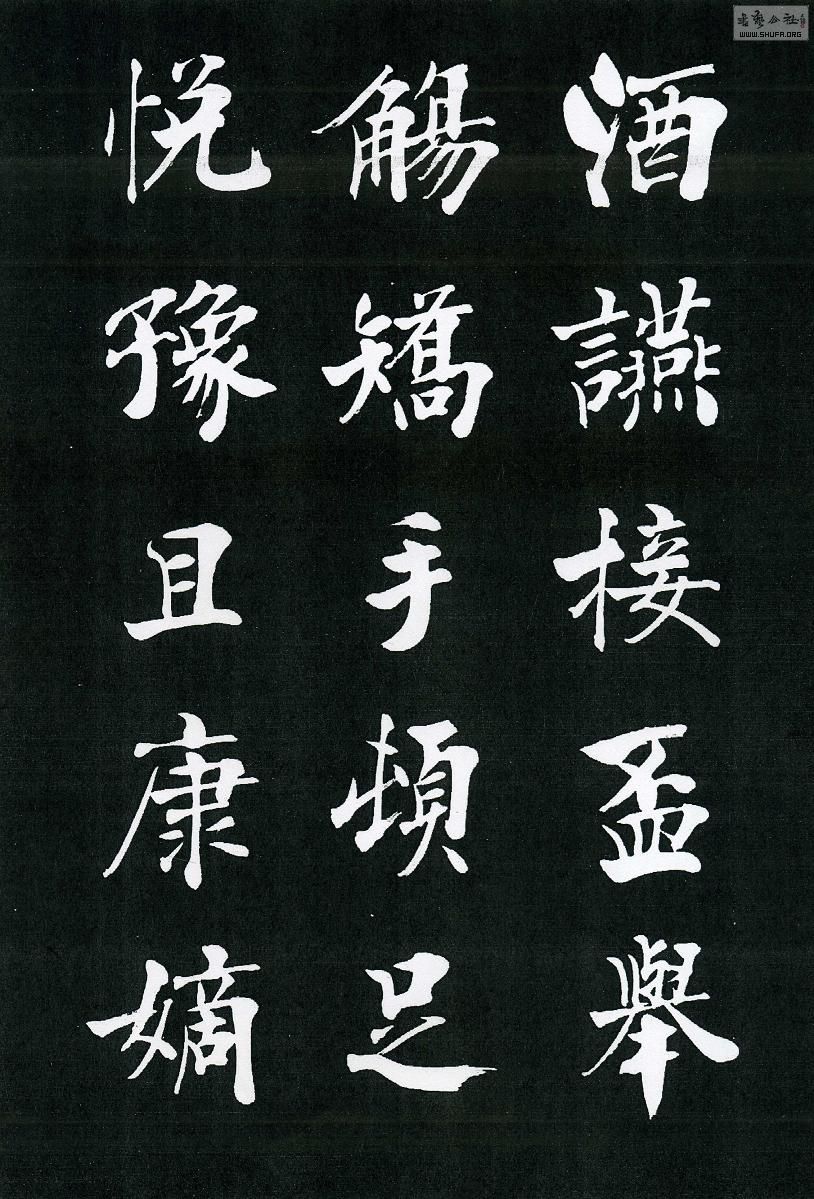 酒讌接盃舉
觴矯手頓足
悅豫且康嫡
書藝公社
WWW.SHUFA.ORG